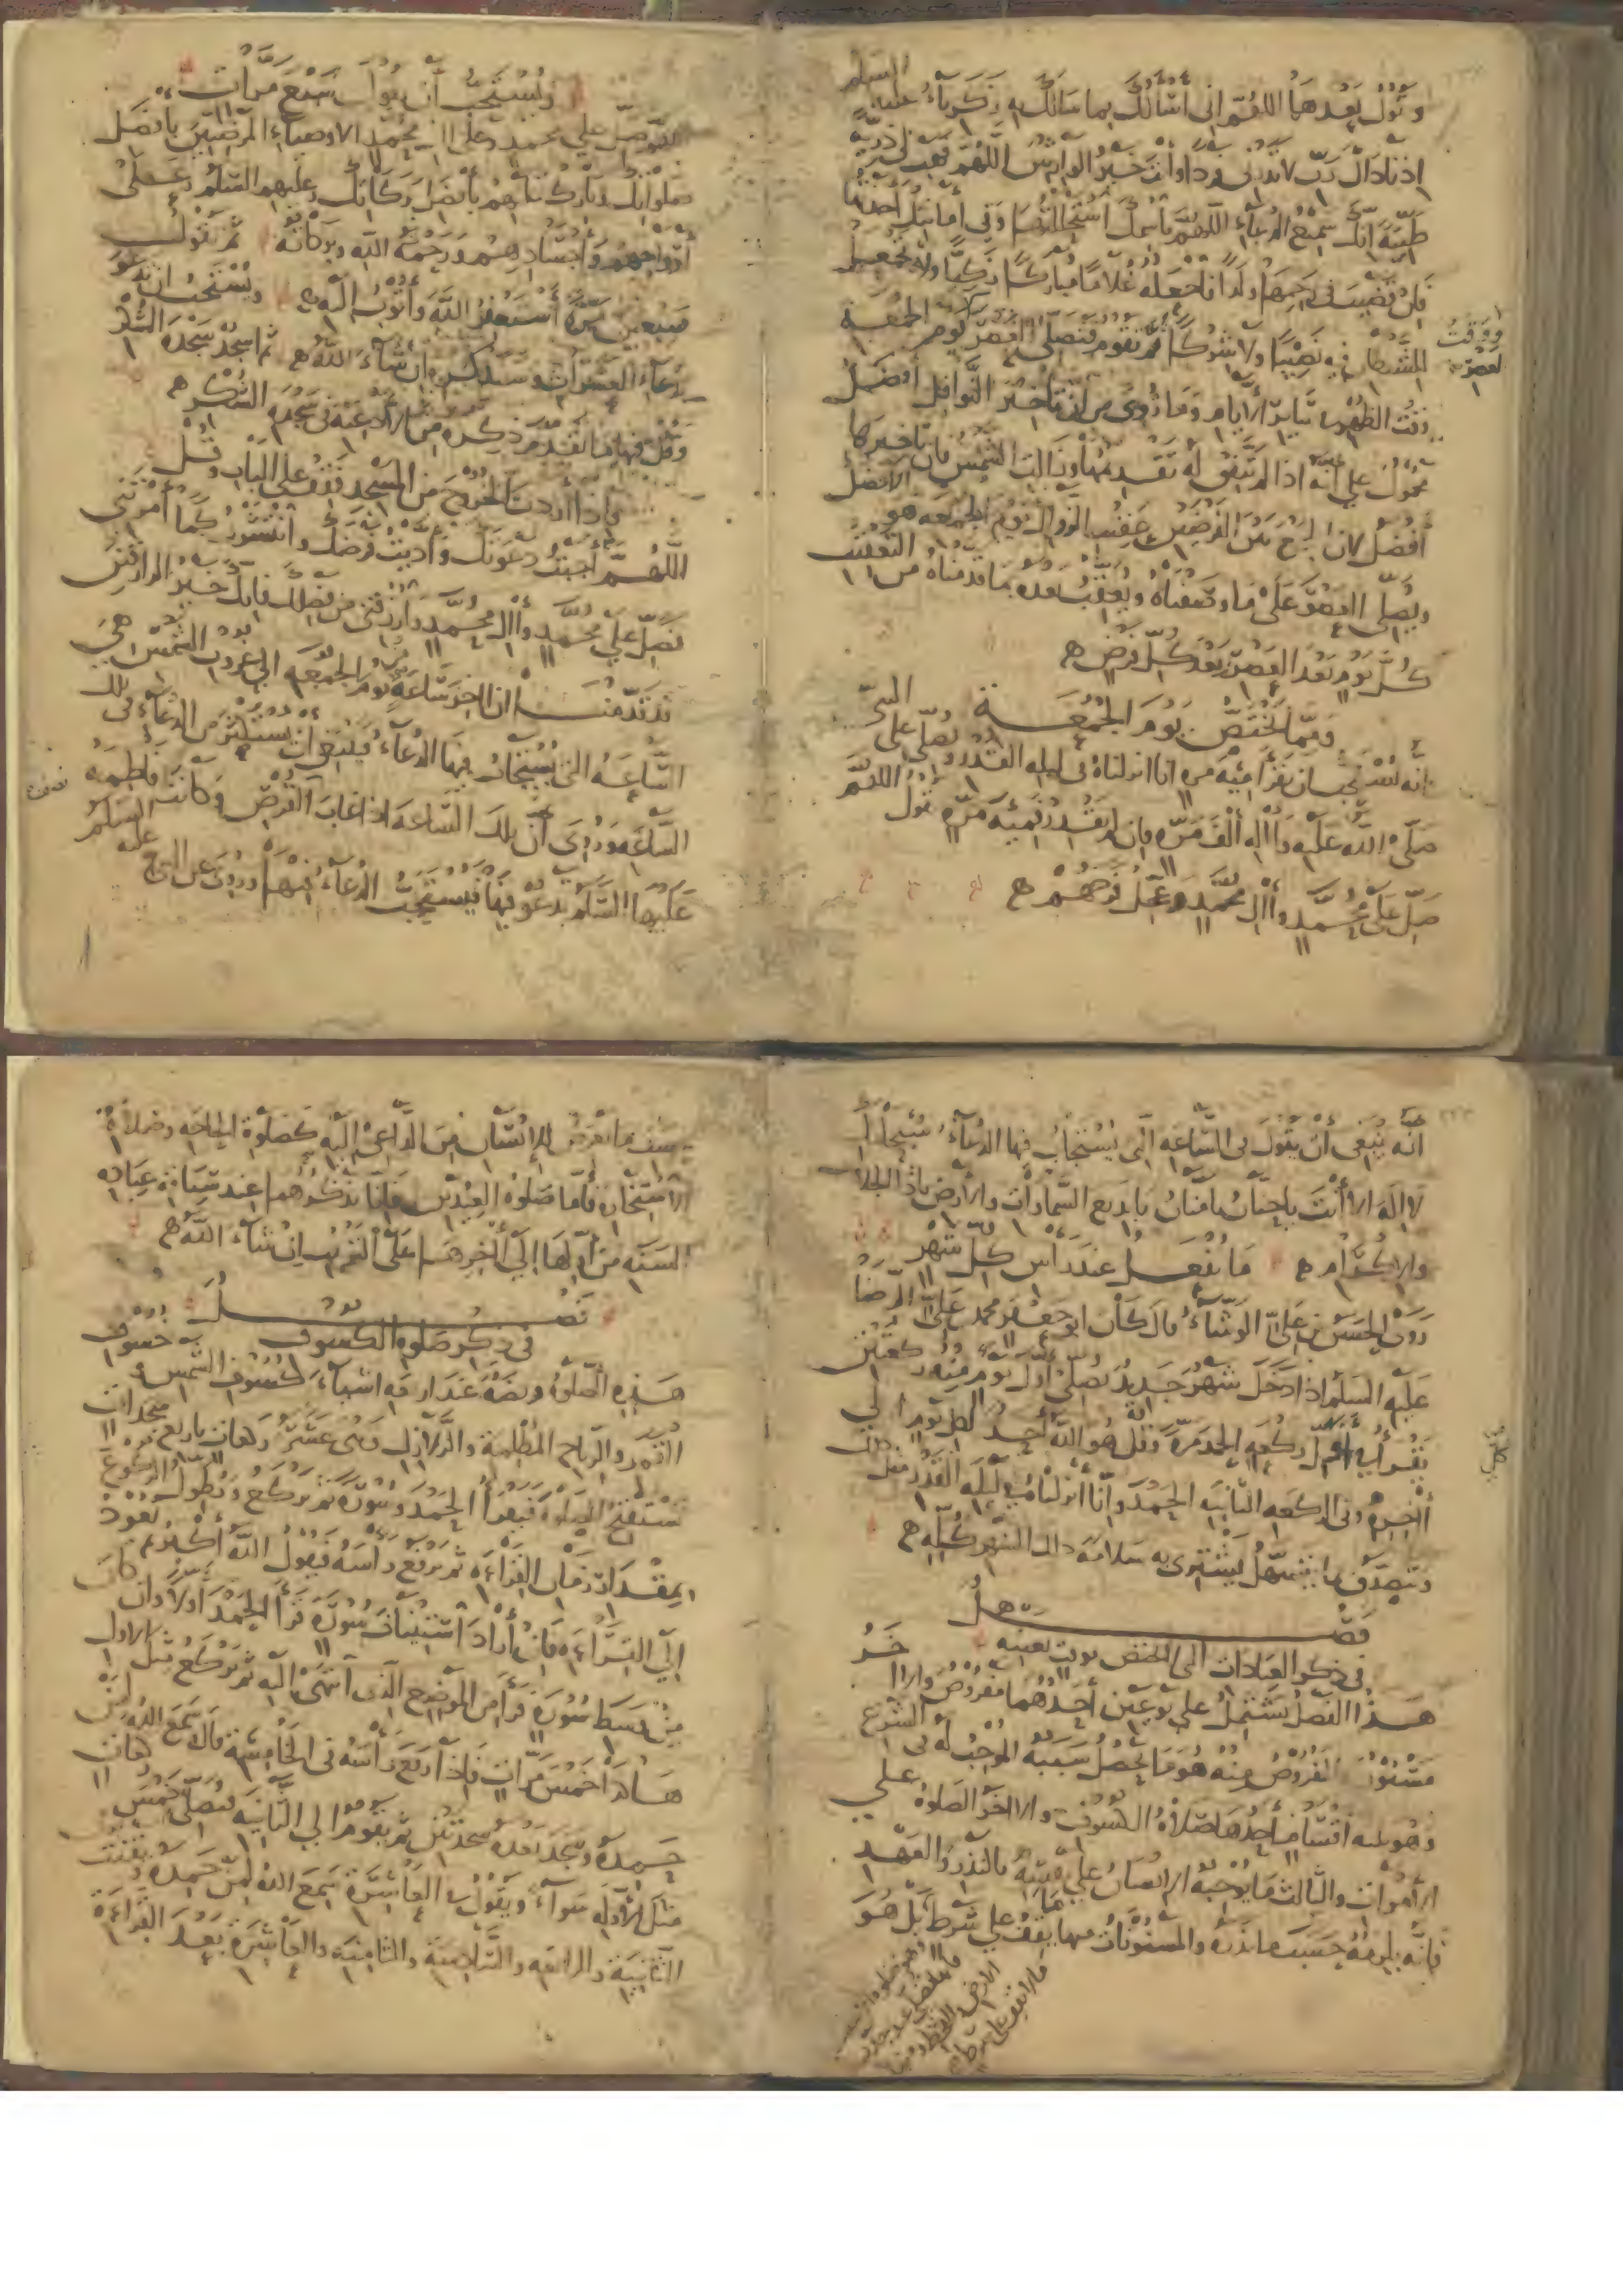 وتقول بعدها اللهم اني أسألك بما سألك به زكريا عليه السلم
اذ ناداك رب لا تذرني فردا وأنت خير الوارثين اللهم فهب لي ذرية
طيبة انك سميع الدعاء اللهم باسمك استحللتها وفي أمانتك أخذتها
فان قضيت في رحمها ولدا فاجعله غلاما مباركا زكيا ولا تجعل
للشيطان فيه نصيبا ولا شركا ثم تقوم فتصلي العصر يوم الجمعة
ووقت العصر
وقت الظهر في سائر الأيام وما روي من ان تأخير النوافل أفضل
محمول على أنه اذا لم يتفق له تقديمها وزالت الشمس فان تأخيرها
أفضل لان الجمع بين الفرضين عقيب الزوال يوم الجمعه هو الأفضل
ويصلي العصر على ما وصفناه ويعقب بعده بما قدمناه من التعقيب
كل يوم بعد العصر وبعد كل فرض
ومما يختص يوم الجمعة
انه يستحب ان يقرأ مئة مرة انا انزلناه في ليلة القدر ويصلي على النبي
صلى الله عليه وآله ألف مرة فان لم يقدر فمئة مرة تقول اللهم
صل على محمد وآل محمد وعجل فرجهم
ويستحب أن يقول سبع مرات
اللهم صل على محمد وعلى آل محمد الاوصياء المرضيين بافضل
صلواتك وبارك عليهم بأفضل بركاتك وعليهم السلم وعلى
أرواحهم وأجسادهم ورحمة الله وبركاته ثم تقول
سبعين مرة أستغفر الله وأتوب اليه ويستحب ان يدعو
بدعاء العشرات وسنذكره ان شاء الله ثم اسجد سجدة الشكر
وقل فيها ما تقدم ذكره من الأدعية في سجدة الشكر
فاذا أردت الخروج من المسجد فقف على الباب وقل
اللهم أجبت دعوتك وأديت فرضك وانتشرت كما أمرتني
فصل على محمد وآل محمد وارزقني من فضلك فانك خير الرازقين
قد قدمنا ان اخر ساعة يوم الجمعه الى غروب الشمس هي
الساعة التي يستجاب فيها الدعاء فينبغي ان يستكثر من الدعاء في تلك
الساعه وروي أن تلك الساعه اذا غاب نصف القرص وكانت فاطمه
عليها السلم تدعو فيها فيستحب الدعاء فيها وروي عن النبي عليه السلم
انه ينبغي أن يقول في الساعه التي يستجاب فيها الدعاء سبحانك
لا اله الا أنت يا حنان يا منان يا بديع السماوات والأرض يا ذا الجلال
والاكرام ما يفعل عند رأس كل شهر
روى الحسن بن علي الوشاء قال كان ابو جعفر محمد بن علي الرضا
عليه السلم اذا دخل شهر جديد يصلي أول يوم منه ركعتين
يقرأ في أول ركعه الحمد مرة وقل هو الله أحد لكل يوم الى
أخره وفي الركعه الثانيه الحمد وانا أنزلناه في ليله القدر مثل ذلك
ويتصدق بما يتسهل يشتري به سلامة ذلك الشهر كله
فصل
في ذكر العبادات التي لا تختص بوقت بعينه
هذا الفصل يشتمل على نوعين أحدهما مفروض والاخر
مسنون فالمفروض منه هو ما يحصل سببه الموجب له في الشرع
وهو ثلثه أقسام أحدها صلاة الكسوف والاخر الصلوة على
الأموات والثالث ما يوجبه الانسان على نفسه بالنذر والعهد
فانه يلزمه حسب ما نذره والمسنونات منها ما يقف على شرط بل هو
ما لا يقف على شرط
بحسب ما يعرض للإنسان من الدواعي اليه كصلوة الحاجه وصلاة
الاستخارة فأما صلوة العيدين فانا نذكرهما عند سياقة عبادة
السنه من أولها الى أخرها على الترتيب ان شاء الله
فصل
في ذكر صلوة الكسوف
هذه الصلوة فريضة عند اربعه اشياء كسوف الشمس وخسوف
القمر والرياح المظلمة والزلازل وهي عشر ركعات باربع سجدات
تستفتح الصلوة فيقرأ الحمد وسورة ثم يركع ويطول الركوع
بمقدار زمان القراءه ثم يرفع رأسه فيقول الله أكبر ويعود
إلى القراءه فان أراد استيناف سورة قرأ الحمد أولا وان كان
من وسط سورة قرأ من الموضع الذي انتهى اليه ثم يركع مثل الاول
هكذا خمس مرات فاذا رفع رأسه في الخامسة قال سمع الله لمن
حمده وسجد بعده سجدتين ثم يقوم الي الثانيه فيصلي خمس ركعات
مثل الأوله سواء ويقول في العاشرة سمع الله لمن حمده ويقنت
الثانية والرابعه والسادسة والثامنة والعاشرة بعد القراءة